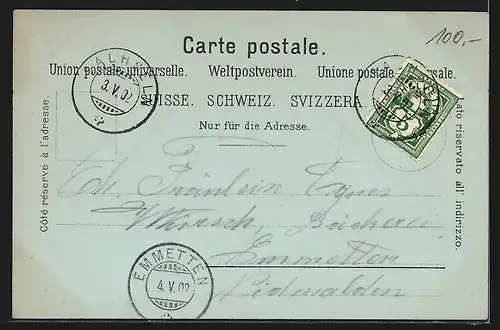 Carte postale.
100,-
Union postale universelle. Weltpostverein. Unione postale universale.
SUISSE. SCHWEIZ. SVIZZERA.
Nur für die Adresse.
Côté réservé à l'adresse.
Lato riservato all' indirizzo.
3.V.02
Fräulein Agnes
Bäckerei
Emmetten
Nidwalden
EMMETTEN
4.V.02